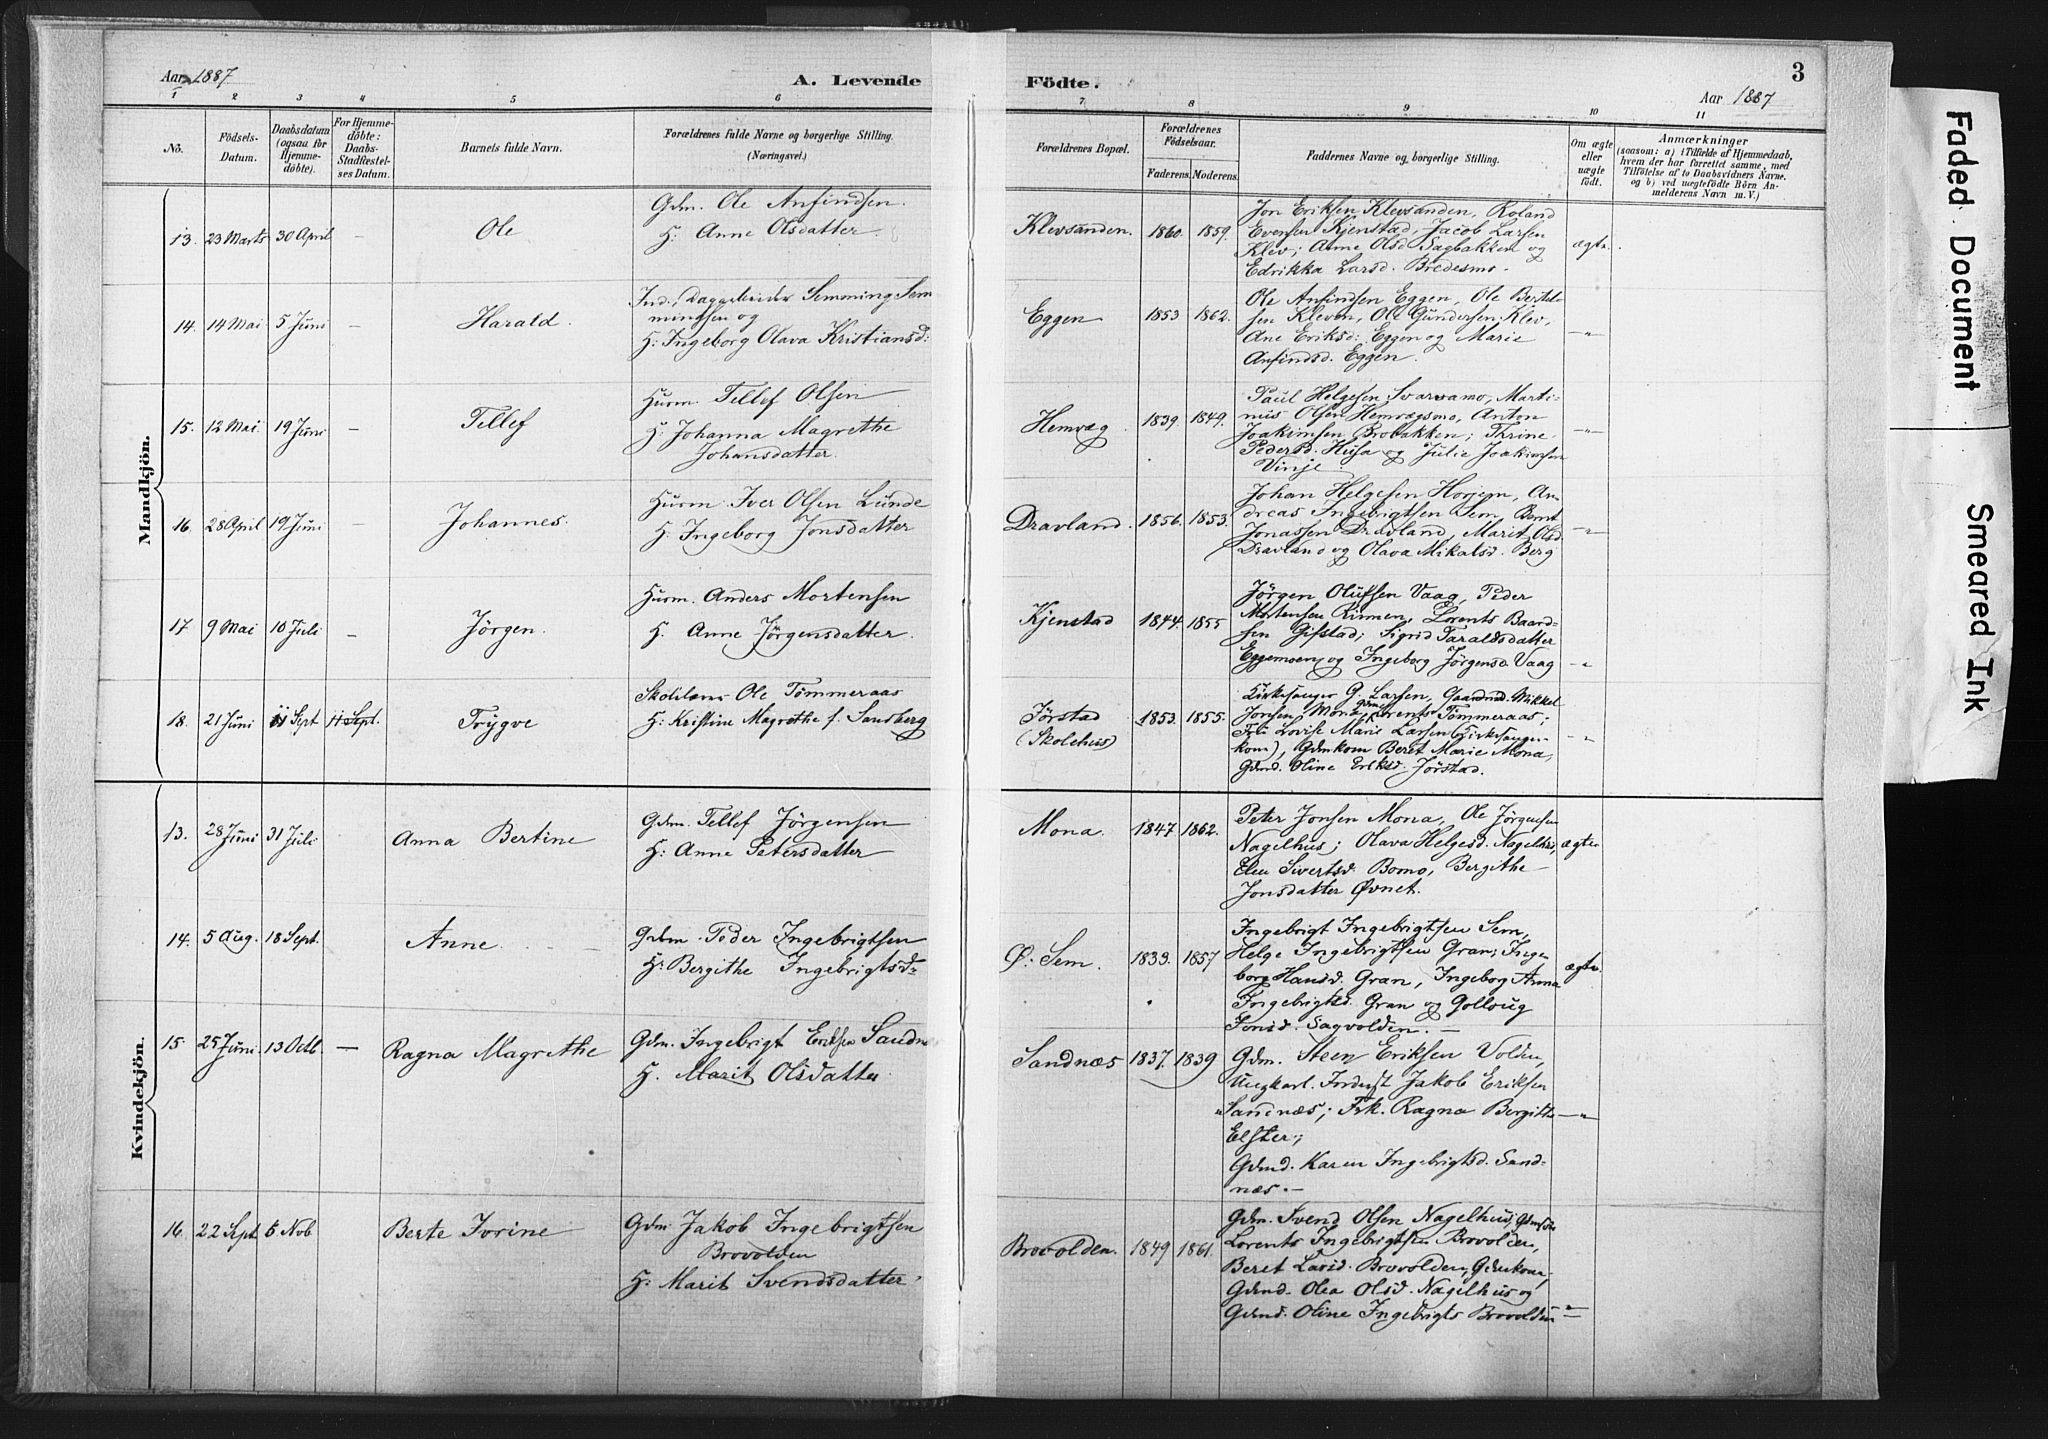 Aar 1887
A. Levende Födte.
3
Aar 1887
1 2 3 4 5 6 7 8 9 10 11
No.
Födsels-
Datum.
Daabsdatum
(ogsaa for
Hjemme-
döbte).
For Hjemme-
döbte:
Daabs-
Stadfæstel-
ses Datum.
Barnets fulde Navn.
Forældrenes fulde Navne og borgerlige Stilling.
(Næringsvei.)
Forældrenes Bopæl.
Forældrenes
Födselsaar.
Faderens. Moderens.
Faddernes Navne og borgerlige Stilling.
Om ægte
eller
uægte
födt.
Anmærkninger
(saasom: a) i Tilfælde af Hjemmedaab,
hvem der har forrettet samme, med
Tilföielse af to Daabsvidners Navne.
og b) ved uægtefödte Börn An-
melderens Navn m. V.)
Mandkjön.
13. 23 Marts 30 April – Ole
Gdm. Ole Anfindsen.
H: Anne Olsdatter.
Klevsanden. 1860. 1859.
Jon Eriksen Klevsanden, Roland
Evensen Kjenstad, Jacob Larsen
Klev; Anne Olsd Sagbakken og
Edrikka Larsd. Bredesmo.
ægte.
14. 14 Mai 5 Juni – Harald.
Ind., Dagarbeider Semming Sem
mingsen og
H: Ingeborg Olava Kristiansd:
Eggen 1853 1862.
Ole Anfindsen Eggen, Ole Bertel-
sen Kleven, Ole Gundersen Klev,
Ane Eriksd: Eggen og Marie
Anfindsd. Eggen.
–"–
15. 12 Mai. 19 Juni – Tellef
Husm. Tellef Olsen
H: Johanna Magrethe
Johansdatter.
Hemvæg. 1839. 1849.
Paul Helgesen Svarvamo, Marti-
nus Olsen Hemvægsmo, Anton
Joakimsen Brobakken; Thrine
Pedersd. Husa og Julie Joakimsen
Vinje
–"–
16. 28 April 19 Juni – Johannes.
Husm. Iver Olsen Lunde
H. Ingeborg Jonsdatter
Dravland. 1856. 1853.
Johan Helgesen Horjem, An-
dreas Ingebrigtsen Sem, Bernt
Jonassen Dravland, Marit Olsd
Dravland og Olava Mikalsd. Berg
–"–
17 9 Mai 10 Juli – Jörgen.
Husm. Anders Mortensen
H. Anne Jörgensdatter.
Kjenstad 1844. 1855
Jörgen Olufsen Vaag, Peder
Mortensen Rinnen, Lorents Baard-
sen Gifstad; Sigrid Taraldsdatter
Eggemoen, og Ingeborg Jörgensd. Vaag
–"
18. 21 Juni 11 Sept 11 Sept. Trygve
Skolelærer Ole Tömmeraas
H: Kristine Magrethe f. Sandberg
Jörstad
(Skolehus)
1853. 1855.
Kirkesanger G. Larsen, Gaardmd. Mikkel
Jonsen Mona, Lorents Tömmeraas;
Fru Lovise Marie Larsen (Kirkesanger-
kone), Gdmkom Beret Marie Mona,
Gdmd. Oline Eriksd. Jörstad.
–"–
Kvindekjön.
13. 28 Juni 31 Juli Anna Bertine
Gdm. Tellef Jörgensen
H: Anne Petersdatter
Mona. 1847. 1862.
Peter Jonsen Mona, Ole Jörgensen
Nagelhus; Olava Helgesd. Nagelhus,
Elen Sivertsd. Bomo, Bergithe
Jonsdatter Øvnet.
ægte
14. 5 Aug. 18 Sept. Anne
Gdm. Peder Ingebrigtsen
H: Bergithe Ingebrigtsd.
Ø: Sem. 1833. 1857
Ingebrigt Ingebrigtsen Sem,
Helge Ingebrigtsen Gran; Inge-
borg Hansd. Gran, Ingeborg Anna
Ingebrigtsd. Gran og Golloug
Jonsd. Sagvolden. –
ægte.
15. 25 Juni 13 Octb. – Ragna Magrethe
Gdm. Ingebrigt Eriksen Sandn
H. Marit Olsdatter
Sandnæs 1837. 1839
Gdm. Steen Eriksen Volden,
Ungkarl. Jakob Eriksen
Sandnæs; Frk. Ragna Bergitte
Elster;
Gdmd. Karen Ingebrigtsd. Sand-
næs. –
–"
16. 22 Sept 6 Nob Berte Jorine
Gdm Jakob Ingebrigtsen
Brovolden
H: Marit Svendsdatter.
Brovolden. 1849 1861.
Gdm. Svend Olsen Nagelhus, Gdmsön
Lorents Ingebrigtsen Brovolden,
Beret Larsd. Brovolden, Gdmkone,
Gdmd. Olea Olsd. Nagelhus og
Gdmd. Oline Ingebrigts Brovolden
–"–
Faded Document
Smeared Ink